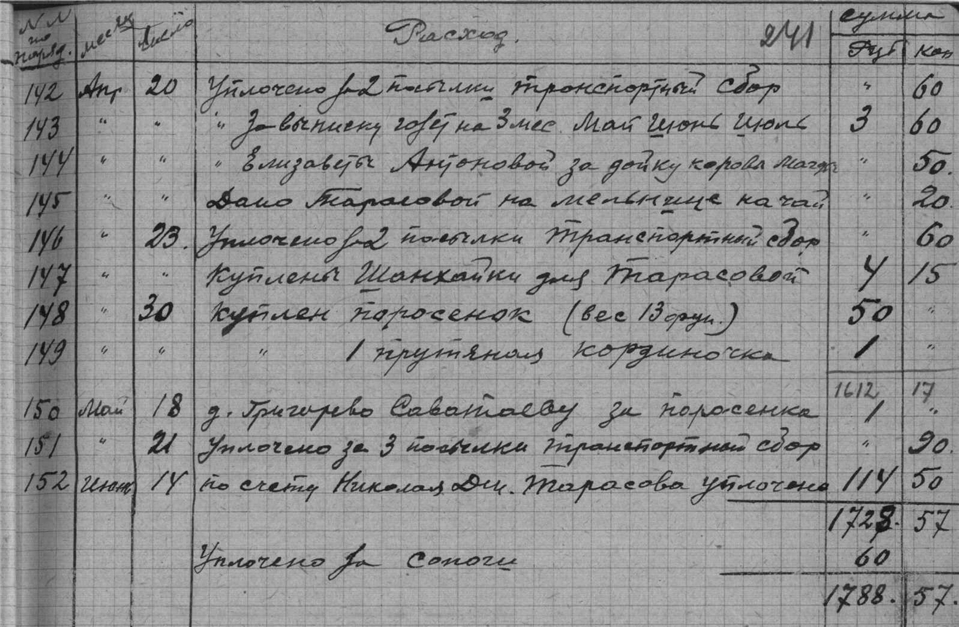 N.N по поряд. месяц Число Расход. 241 сумма
Руб коп
142 Апр 20 Уплочено за 2 посылки транспортный сбор " 60
143 " " " За выписку газет на 3 мес. Май Июнь Июль 3 60
144 " " " Елизаветы Антоновой за дойку корова " 50.
145 " " Дано Тарасовой на мельнице на чай " 20.
146 " 23. Уплочено за 2 посылки транспортный сбор " 60
147 " " Куплены Шанхайки для Тарасовой 4 15
148 " 30 Куплен поросенок (вес 13 фун.) 50 "
149 " " " 1 прутяная кординочка 1 "
1612 17
150 Май 18 д. Григорево Саватаеву за поросенка 1 "
151 " 21 Уплочено за 3 посылки транспортный сбор " 90.
152 Июнь 14 по счету Николая Дм. Тарасова уплочено 114 50
1728. 57
Уплочено за сапоги 60
1788. 57.